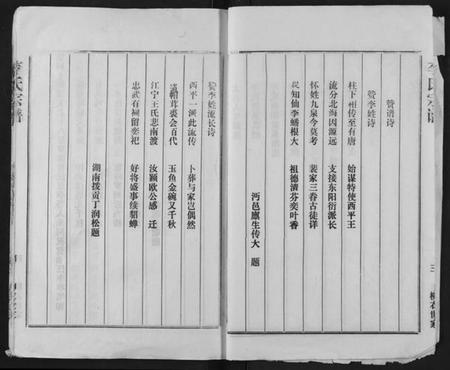 赞谱诗
赞李姓诗
柱下一传至有唐 始谋特使西平王
流分北海因源远 支接东阳衍派长
怀姓九泉今莫考 装家三眷古徒详
知仙李蟠根大 祖德清芬奕叶香
沔邑廪生传大 题
赞李姓流长诗
西平一派此流传 卜葬与家岂偶然
茸裘会百代 玉鱼金碗又千秋
江宁王氏悲南渡 汝颍欧公感 迁
忠武有祠留奕祀 好将盛事续貂蝉
湖南拨贡丁润松题
李氏宗谱
三